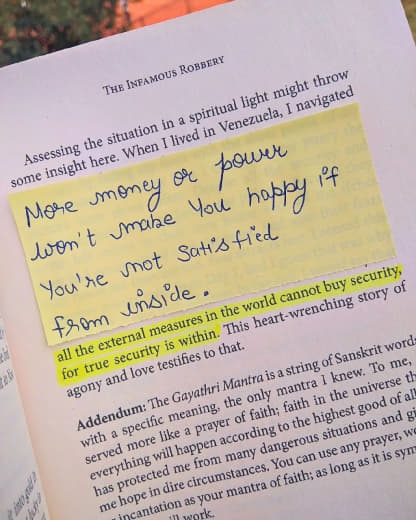 THE INFAMOUS ROBBERY
Assessing the situation in a spiritual light might throw
some insight here. When I lived in Venezuela, I navigated
More money or power
won't make you happy if
You're not Satisfied
from inside.
all the external measures in the world cannot buy security,
for true security is within. This heart-wrenching story of
agony and love testifies to that.
Addendum: The Gayathri Mantra is a string of Sanskrit words
with a specific meaning, the only mantra I knew. To me,
served more like a prayer of faith; faith in the universe
everything will happen according to the highest good of
has protected me from many dangerous situations and
me hope in dire circumstances. You can use any prayer,
incantation as your mantra of faith; as long as it is
work.